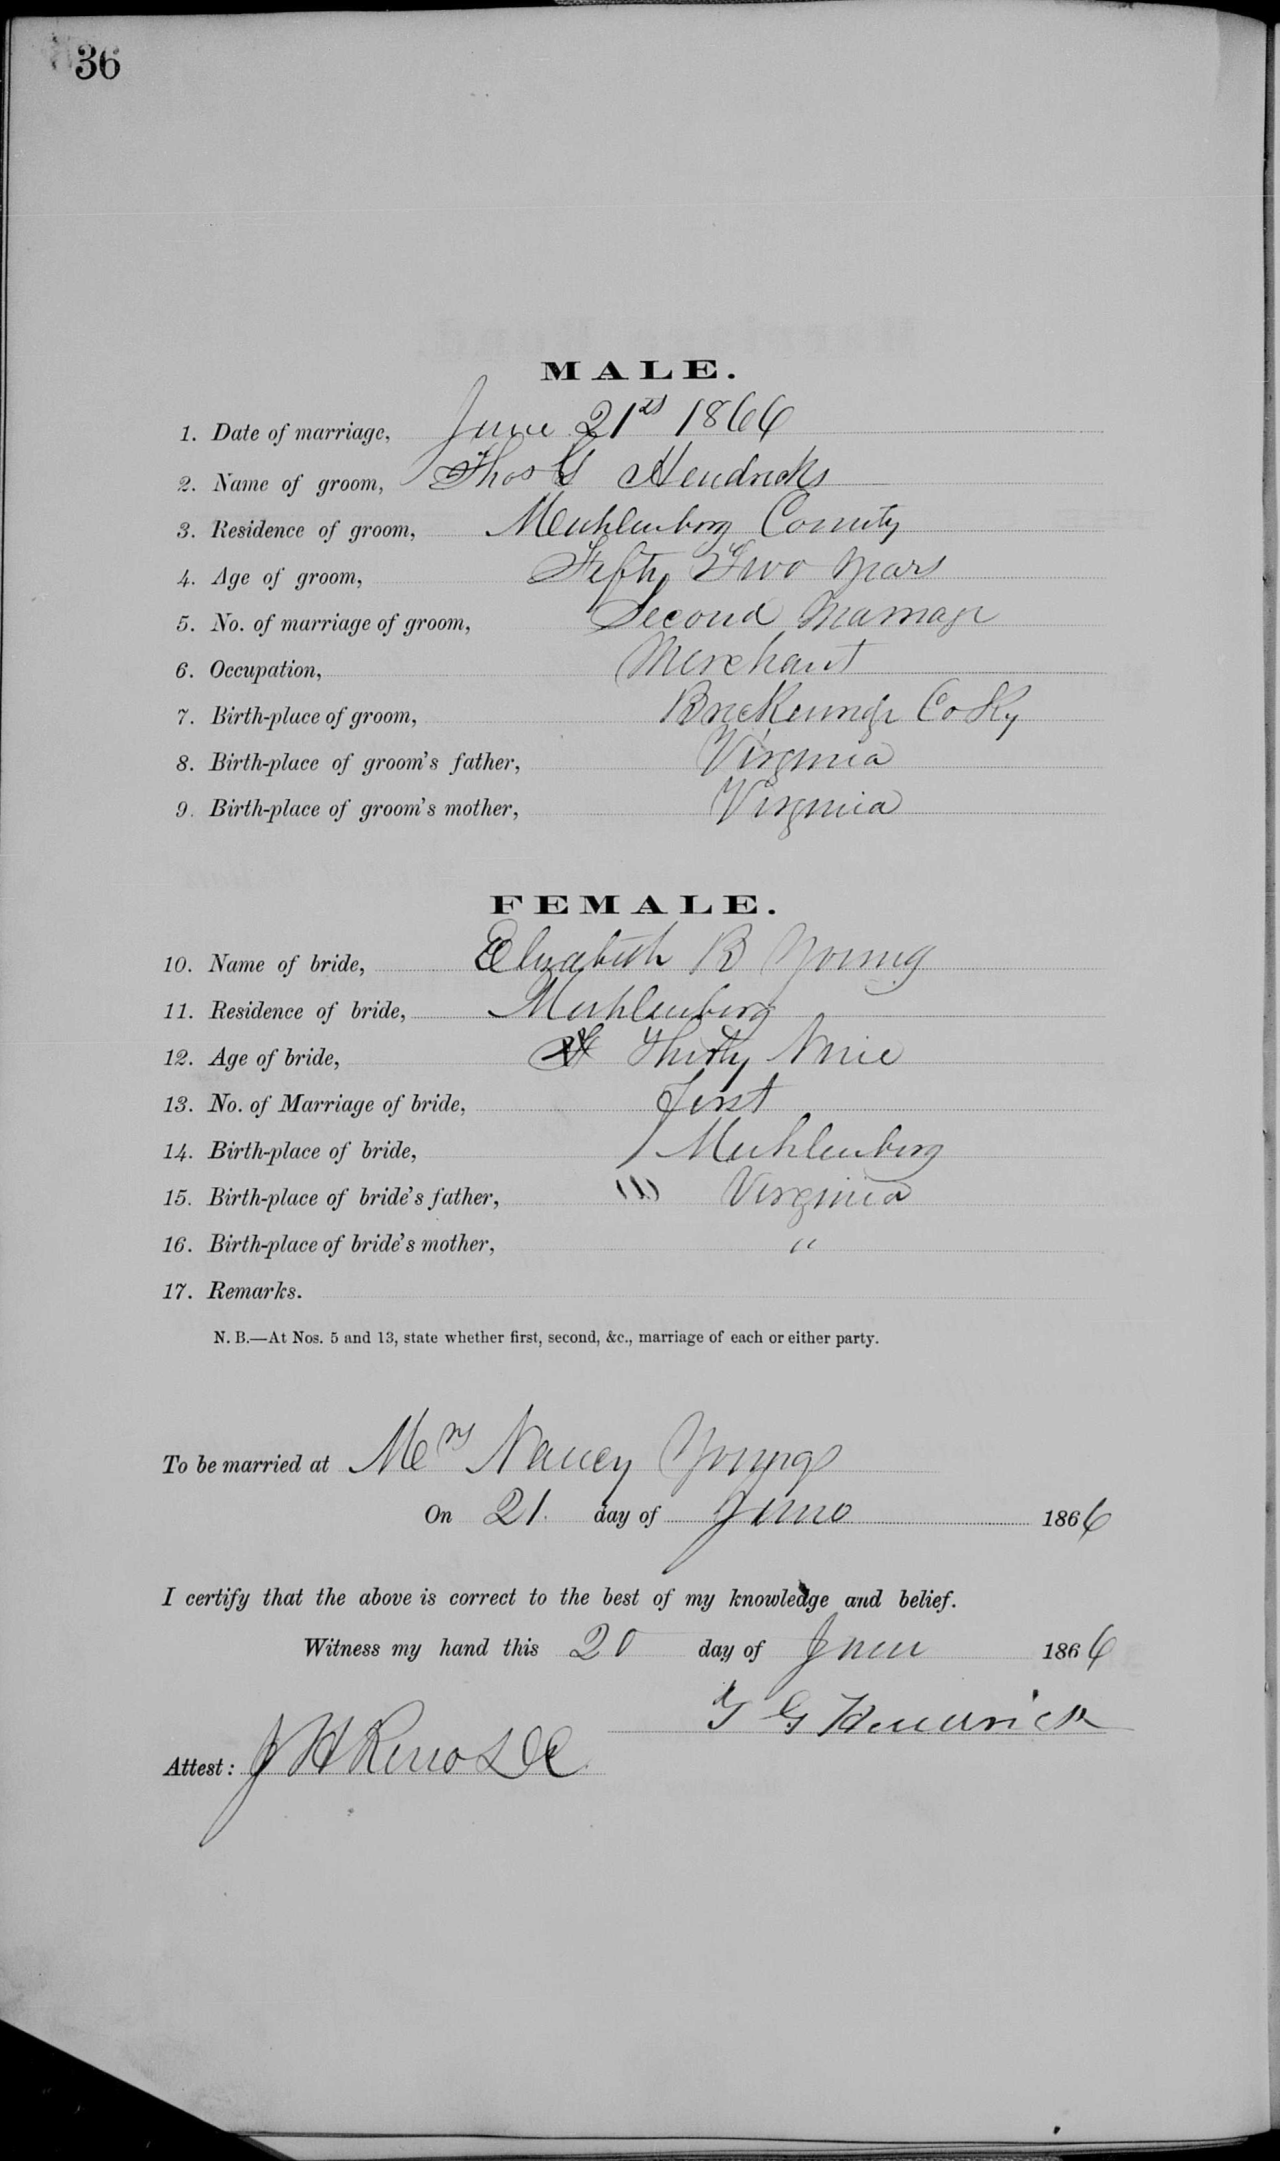 36
MALE.
1. Date of marriage, June 21st 1866
2. Name of groom, Thos G Hendricks
3. Residence of groom, Muhlenberg County
4. Age of groom, Fifty Two years
5. No. of marriage of groom, Second Marriage
6. Occupation, Merchant
7. Birth-place of groom, Breckenridge Co Ky
8. Birth-place of groom's father, Virginia
9. Birth-place of groom's mother, Virginia
FEMALE.
10. Name of bride, Elizabeth B Young
11. Residence of bride, Muhlenberg
12. Age of bride, Thirty Nine
13. No. of Marriage of bride, First
14. Birth-place of bride, Muhlenberg
15. Birth-place of bride's father, Virginia
16. Birth-place of bride's mother, "
17. Remarks.
N. B.—At Nos. 5 and 13, state whether first, second, &c., marriage of each or either party.
To be married at Mrs Nancy Youngs
On 21 day of June 1866
I certify that the above is correct to the best of my knowledge and belief.
Witness my hand this 20 day of June 1866
T G Hendrick
Attest: J H Reno